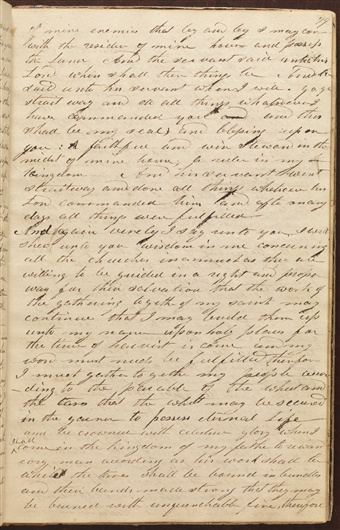 of mine enemies that by and by I may com
with the residue of mine house and possess
the land And the servant said unto his
Lord when shall these things be And he
said unto his servant when I will go ye
strait way and do all things whatsoever I
have commanded you and this
shall be my seal and blessing upon
you A faithful and wise steward in the
midst of mine house a ruler in my
kingdom And his servant went
straitway and done all things whatsoever his
Lord commanded him and after many
days all things were fulfilled
And again verely I say unto you I will
shew unto you wisdom in me concerning
all the churches inasmuch as they are
willing to be guided in a right and proper
way for their salvation that the work of
the gathering together of my saints may
continue that I may build them up
unto my name upon holy places for
the time of harvest is come and my
word must needs be fulfilled therefore
I must gather together my people accor
ding to the parable of the wheat and
the tares that the wheat may be secured
in the garner to possess eternal life
and be crowned with celestial glory when I
shall
come in the kingdom of my father to reward
every man according as his work shall be
while the tares shall be bound in bundles
and their bands made strong that they may
be burned with unquenchable fire therefore